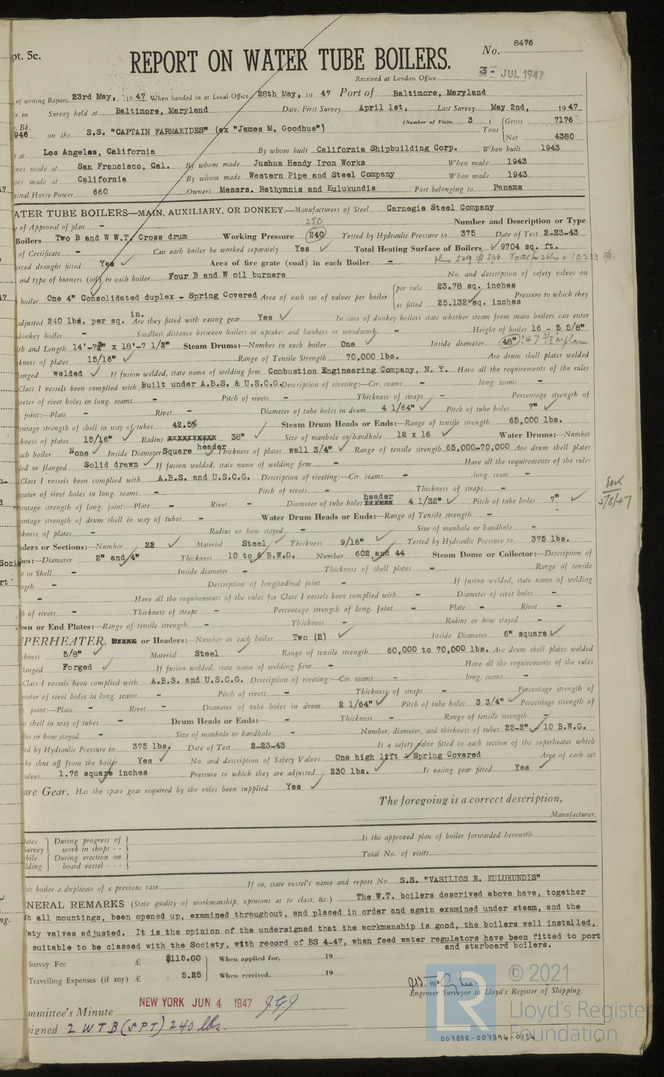 pt. 5c.
REPORT ON WATER TUBE BOILERS.
No. 8476
Received at London Office 3 - JUL 1947
of writing Report 23rd May, 1947 When handed in at Local Office 28th May, 1947 Port of Baltimore, Maryland
Survey held at Baltimore, Maryland Date, First Survey April 1st, Last Survey May 2nd, 1947
946 on the S.S. "CAPTAIN FARMAKIDES" (ex "James M. Goodhue") (Number of Visits 3) Tons Gross 7176 Net 4380
at Los Angeles, California By whom built California Shipbuilding Corp. When built 1943
made at San Francisco, Cal. By whom made Jushua Hendy Iron Works When made 1943
made at California By whom made Western Pipe and Steel Company When made 1943
Horse Power 660 Owners Messrs. Rethymnis and Kulukundis Port belonging to Panama
ATER TUBE BOILERS—MAIN, AUXILIARY, OR DONKEY.—Manufacturers of Steel Carnegie Steel Company
of Approval of plan - 250 Number and Description or Type
Boilers Two B and W W.T. Cross drum Working Pressure 240 Tested by Hydraulic Pressure to 375 Date of Test 2-23-43
of Certificate - Can each boiler be worked separately Yes Total Heating Surface of Boilers 9704 sq. ft.
forced draught fitted Yes Area of fire grate (coal) in each Boiler -
and type of burners (oil) in each boiler Four B and W oil burners No. and description of safety valves on
boiler One 4" Consolidated duplex - Spring Covered Area of each set of valves per boiler per rule 23.78 sq. inches as fitted 25.132 sq. inches Pressure to which they
adjusted 240 lbs. per sq. in. Are they fitted with easing gear Yes In case of donkey boilers state whether steam from main boilers can enter
donkey boiler - Smallest distance between boilers or uptakes and bunkers or woodwork - Height of boiler 16 - 5 5/8"
th and Length x 18'-7 1/2" Steam Drums:—Number in each boiler One Inside diameter 48"
kness of plates 15/16" Range of Tensile Strength 70,000 lbs. Are drum shell plates welded
anged Welded If fusion welded, state name of welding firm Combustion Engineering Company, N. Y. Have all the requirements of the rules
Class I vessels been complied with Built under A.B.S. & U.S.C.G. Description of riveting:—Cir. seams - long. seams -
meter of rivet holes in long. seams - Pitch of rivets - Thickness of straps - Percentage strength of
joint:—Plate - Rivet - Diameter of tube holes in drum 4 1/64" Pitch of tube holes 7"
entage strength of shell in way of tubes 42.5% Steam Drum Heads or Ends:—Range of tensile strength 65,000 lbs.
kness of plates 15/16" Radius 38" Size of manhole or handhole 12 x 16 Water Drums:—Number
each boiler None Inside Diameter Square header Thickness of plates wall 3/4" Range of tensile strength 65,000-70,000 Are drum shell plates
ed or flanged Solid drawn If fusion welded, state name of welding firm - Have all the requirements of the rules
Class I vessels been complied with A.B.S. and U.S.C.G. Description of riveting:—Cir. seams - long. seam -
meter of rivet holes in long. seams - Pitch of rivets - Thickness of straps -
entage strength of long. joint:—Plate - Rivet - Diameter of tube holes header 4 1/32" Pitch of tube holes 7"
entage strength of drum shell in way of tubes - Water Drum Heads or Ends:—Range of Tensile Strength -
kness of plates - Radius or how stayed - Size of manhole or handhole -
ders or Sections:—Number 22 Material Steel Thickness 9/16" Tested by Hydraulic Pressure to 375 lbs.
es:—Diameter 2" and 4" Thickness 10 to 6 B.W.G. Number 602 and 44 Steam Dome or Collector:—Description of
to Shell - Inside diameter - Thickness of shell plates - Range of tensile
ngth - Description of longitudinal joint - If fusion welded, state name of welding
- Have all the requirements of the rules for Class I vessels been complied with - Diameter of rivet holes -
h of rivets - Thickness of straps - Percentage strength of long. Joint - Plate - Rivet -
own or End Plates:—Range of tensile strength - Thickness - Radius or how stayed -
PERHEATER, or Headers:—Number in each boiler Two (2) Inside Diameter 6" square
kness 5/8" Material Steel Range of tensile strength 60,000 to 70,000 lbs. Are drum shell plates welded
anged Forged If fusion welded, state name of welding firm - Have all the requirements of the rules
Class I vessels been complied with A.B.S. and U.S.C.G. Description of riveting:—Cir. seams - long. seams -
meter of rivet holes in long. seams - Pitch of rivets - Thickness of straps - Percentage strength of
joint:—Plate - Rivet - Diameter of tube holes in drum 2 1/64" Pitch of tube holes 3 3/4" Percentage strength of
shell in way of tubes - Drum Heads or Ends:— - Thickness - Range of tensile strength -
ius or how stayed - Size of manhole or handhole - Number, diameter, and thickness of tubes 22-2" 10 B.W.G.
ed by Hydraulic Pressure to 375 lbs. Date of Test 2-23-43 Is a safety valve fitted to each section of the superheater which
be shut off from the boiler Yes No. and description of Safety Valves One high lift - Spring Covered Area of each set
valves 1.76 square inches Pressure to which they are adjusted 230 lbs. Is easing gear fitted Yes
are Gear. Has the spare gear required by the rules been supplied Yes
The foregoing is a correct description,
Manufacturer.
Dates Survey while building
During progress of work in shops - -
During erection on board vessel - -
Is the approved plan of boiler forwarded herewith
Total No. of visits
his boiler a duplicate of a previous case If so, state vessel's name and report No. S.S. "VASILIOS E. KULUKUNDIS"
NERAL REMARKS (State quality of workmanship, opinions as to class, &c.) The W.T. boilers descrived above have, together
h all mountings, been opened up, examined throughout, and placed in order and again examined under steam, and the
ety valves adjusted. It is the opinion of the undersigned that the workmanship is good, the boilers well installed,
suitable to be classed with the Society, with record of BS 4-47, when feed water regulators have been fitted to port
and starboard boilers.
Survey Fee £ $115.00 When applied for, 19
Travelling Expenses (if any) £ 5.25 When received, 19
Engineer Surveyor to Lloyd's Register of Shipping.
mmittee's Minute NEW YORK JUN 4 1947
signed 2 WTB (SPT) 240 lbs.
5/8/47
© 2021
LR
Lloyd's Register
Foundation
007888-007894-0134